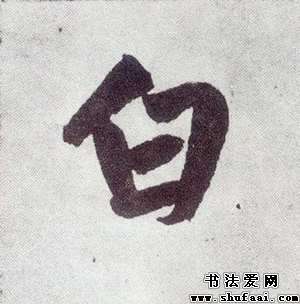 白
书法爱网
www.shufaai.com